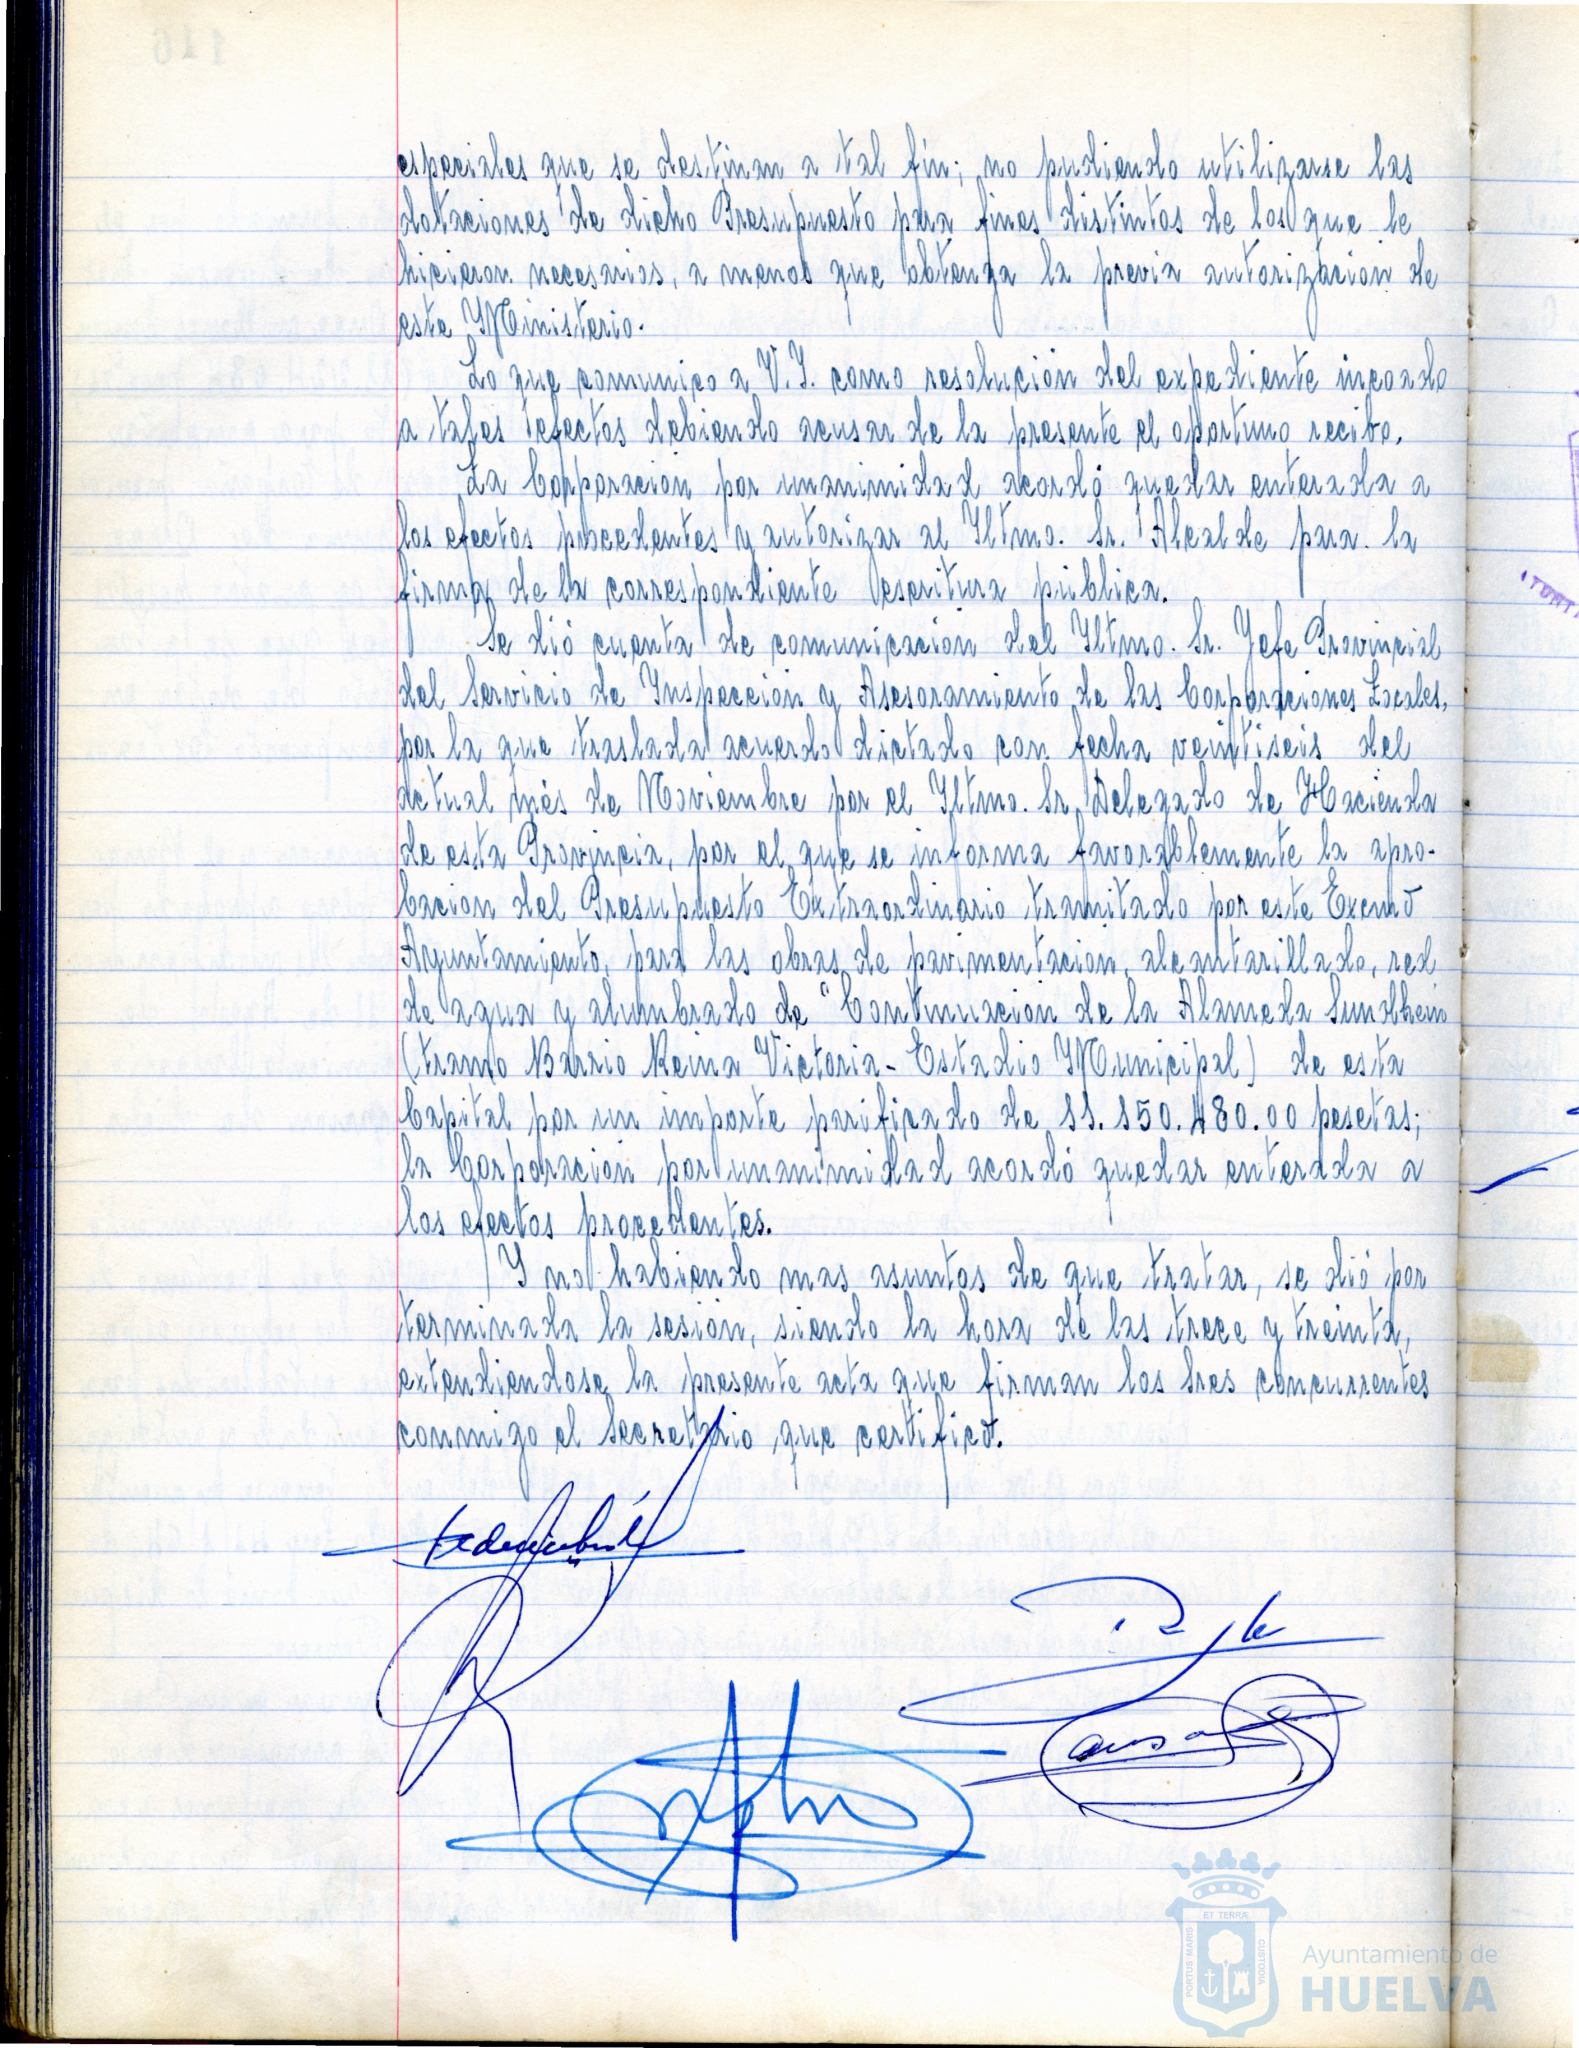 especiales que se destinan a tal fín; no pudiendo utilizarse las
dotaciones de dicho Presupuesto para fines distintos de los que le
hicieron necesarios, a menos que obtenga la previa autorización de
este Ministerio.
Lo que comunico a V.I. como resolución del expediente incoado
a tales efectos debiendo acusar de la presente el oportuno recibo.
La Corporación por unanimidad acordó quedar enterada a
los efectos procedentes y autorizar al Iltmo. Sr. Alcalde para la
firma de la correspondiente escritura pública.
Se dió cuenta de comunicación del Iltmo. Sr. Jefe Provincial
del Servicio de Inspección y Asesoramiento de las Corporaciones Locales,
por la que traslada acuerdo dictado con fecha veintiseis del
actual més de Noviembre por el Iltmo. Sr. Delegado de Hacienda
de esta Provincia, por el que se informa favorablemente la apro-
bación del Presupuesto Extraordinario tramitado por este Excmo
Ayuntamiento, para las obras de pavimentación, alcantarillado, red
de agua y alumbrado de "Continuación de la Alameda Sundhein
(tramo Barrio Reina Victoria- Estadio Municipal) de esta
Capital por un importe parificado de 11.150.480.00 pesetas;
la Corporación por unanimidad acordó quedar enterada a
los efectos procedentes.
Y no habiendo mas asuntos de que tratar, se dió por
terminada la sesión, siendo la hora de las trece y treinta,
extendiendose la presente acta que firman los Sres concurrentes
conmigo el Secretario que certifico.
ET TERRÆ
PORTUS MARIS
CUSTODIA
Ayuntamiento de
HUELVA